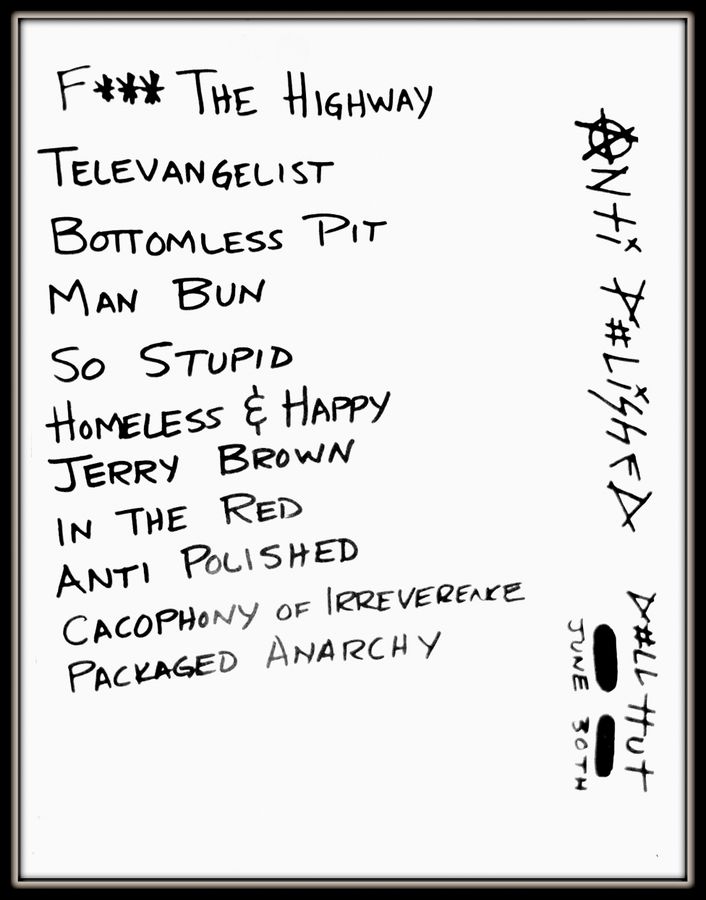 F*** THE HIGHWAY
TELEVANGELIST
BOTTOMLESS PIT
MAN BUN
SO STUPID
HOMELESS & HAPPY
JERRY BROWN
IN THE RED
ANTI POLISHED
CACOPHONY OF IRREVERENCE
PACKAGED ANARCHY
ANTi P#LiSHED
D#LL HUT
JUNE 30TH